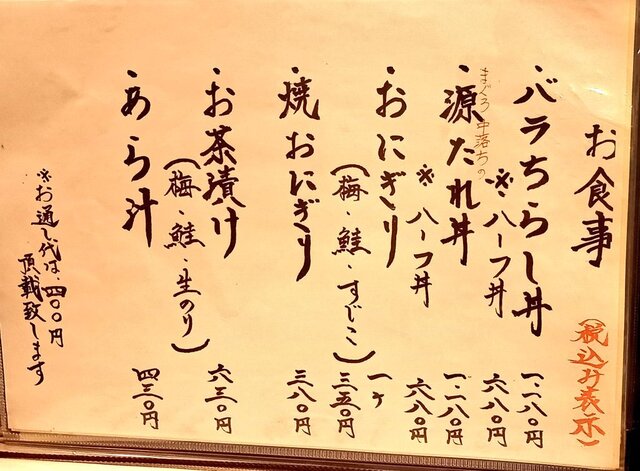 お食事
(税込み表示)
・バラちらし丼 一、一八〇円
※ハーフ丼 六八〇円
まぐろ中落ちの
・源たれ丼 一、一八〇円
※ハーフ丼 六八〇円
・おにぎり 一ケ
(梅・鮭・すじこ) 三五〇円
・焼おにぎり 三八〇円
・お茶漬け 六三〇円
(梅・鮭・生のり)
・あら汁 四三〇円
※お通し代は、四〇〇円
頂戴致します